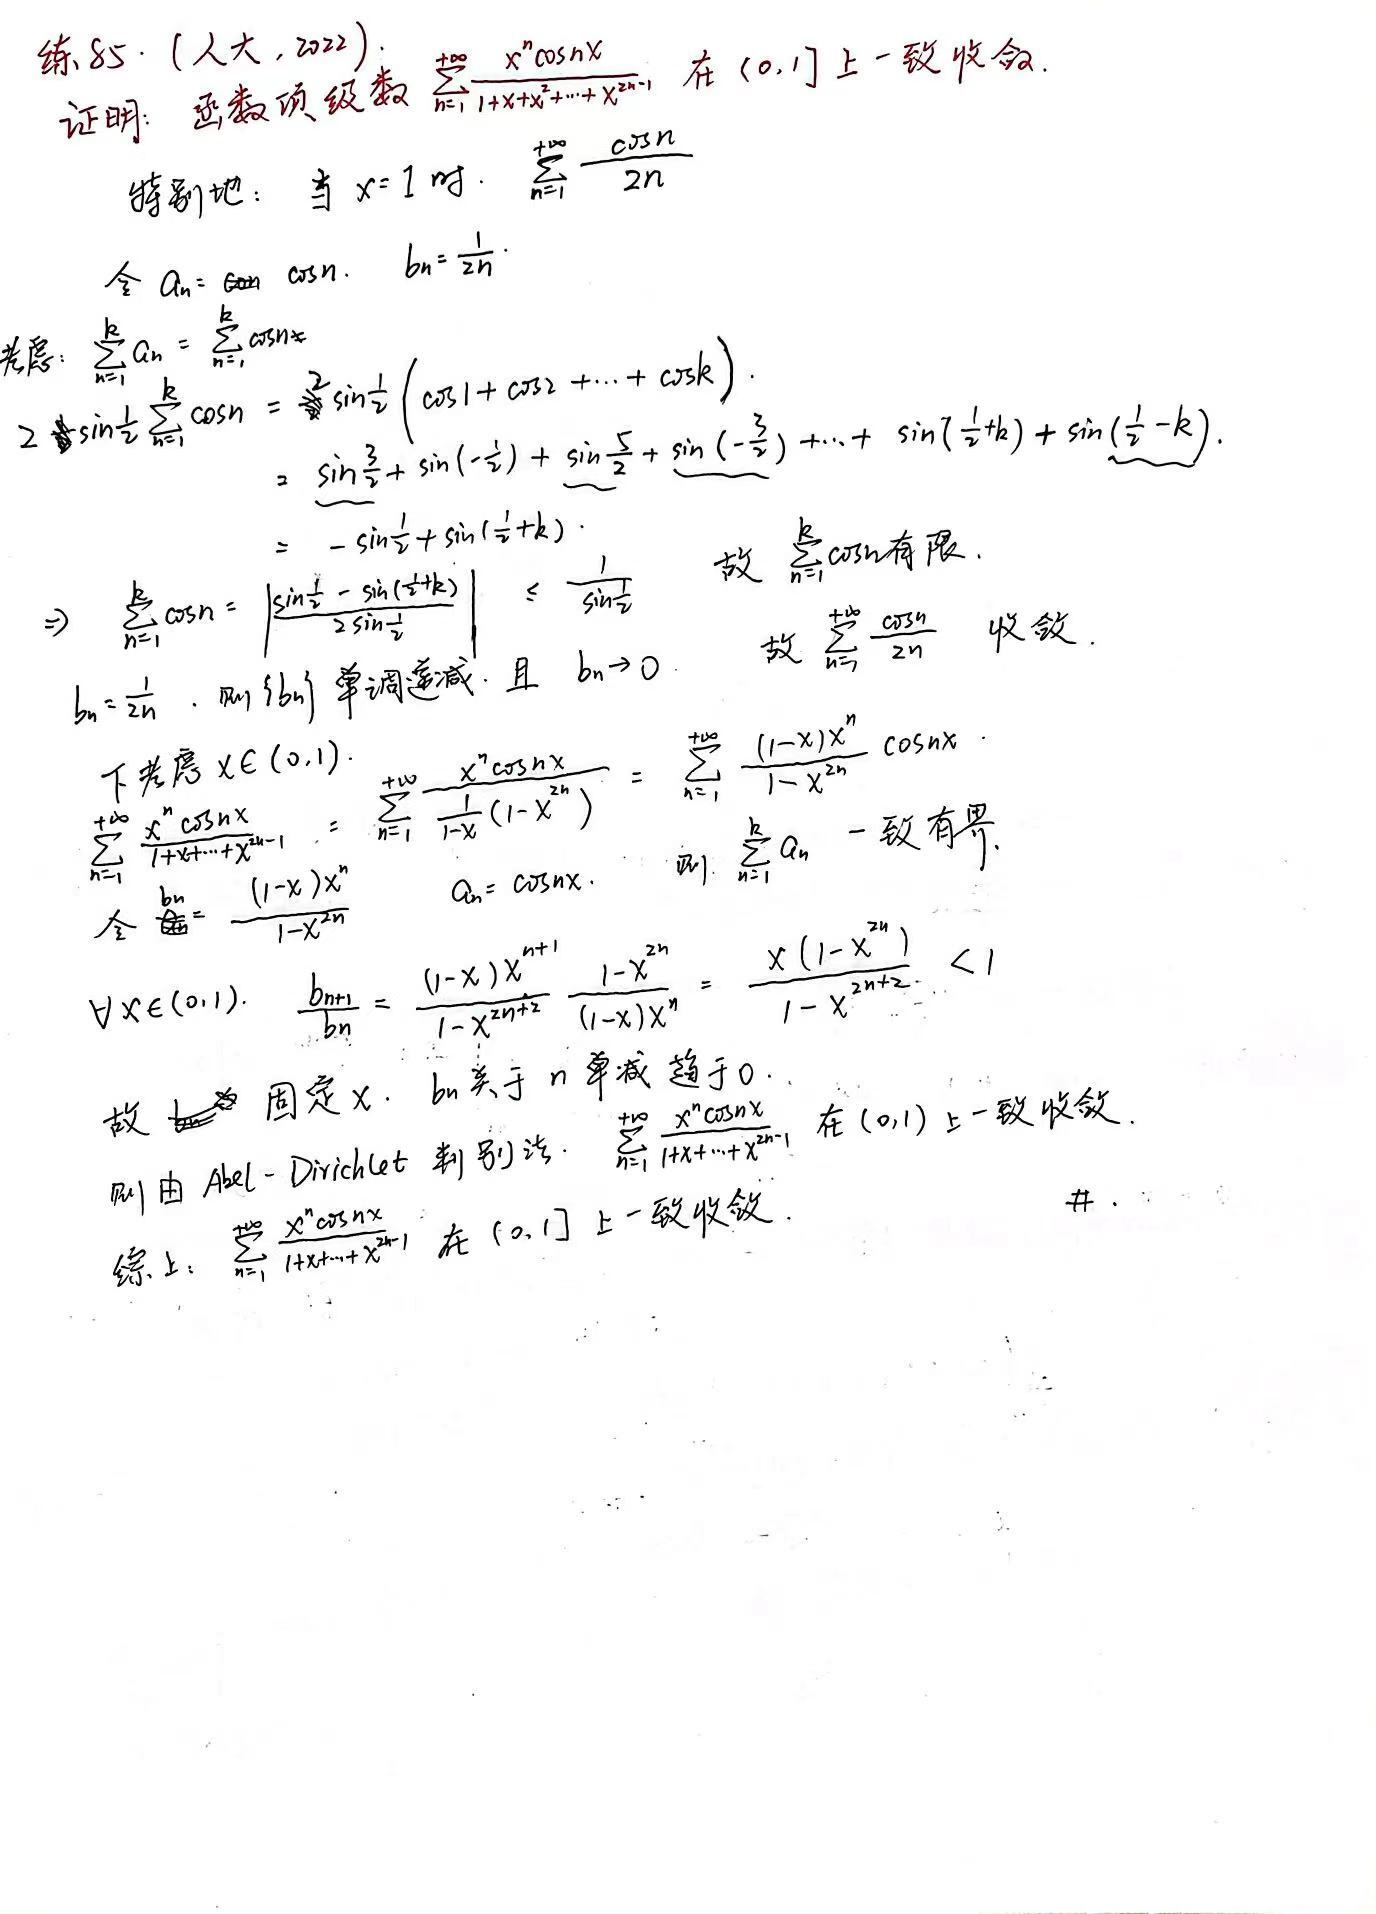 练85.（人大，2022）.
证明: 函数项级数 $\sum_{n=1}^{+\infty} \frac{x^n \cos nx}{1+x+x^2+\cdots+x^{2n-1}}$ 在 (0,1] 上一致收敛.
特别地: 当 x=1 时. $\sum_{n=1}^{+\infty} \frac{\cos n}{2n}$
令 $a_n = \cos n$. $b_n = \frac{1}{2n}$.
考虑: $\sum_{n=1}^{k} a_n = \sum_{n=1}^{k} \cos n$
$2 \sin\frac{1}{2} \sum_{n=1}^{k} \cos n = 2 \sin\frac{1}{2} (\cos 1 + \cos 2 + \cdots + \cos k)$.
$= \sin\frac{3}{2} + \sin(-\frac{1}{2}) + \sin\frac{5}{2} + \sin(-\frac{3}{2}) + \cdots + \sin(\frac{1}{2}+k) + \sin(\frac{1}{2}-k)$.
$= -\sin\frac{1}{2} + \sin(\frac{1}{2}+k)$.
$\Rightarrow \sum_{n=1}^{k} \cos n = \left| \frac{\sin\frac{1}{2} - \sin(\frac{1}{2}+k)}{2\sin\frac{1}{2}} \right| \leq \frac{1}{\sin\frac{1}{2}}$ 故 $\sum_{n=1}^{k} \cos n$ 有限.
$b_n = \frac{1}{2n}$. 则 $\{b_n\}$ 单调递减. 且 $b_n \to 0$. 故 $\sum_{n=1}^{+\infty} \frac{\cos n}{2n}$ 收敛.
下考虑 $x \in (0,1)$.
$\sum_{n=1}^{+\infty} \frac{x^n \cos nx}{1+x+\cdots+x^{2n-1}} = \sum_{n=1}^{+\infty} \frac{x^n \cos nx}{\frac{1}{1-x}(1-x^{2n})} = \sum_{n=1}^{+\infty} \frac{(1-x)x^n}{1-x^{2n}} \cos nx$.
令 $b_n = \frac{(1-x)x^n}{1-x^{2n}}$ $a_n = \cos nx$. 则. $\sum_{n=1}^{k} a_n$ 一致有界.
$\forall x \in (0,1)$. $\frac{b_{n+1}}{b_n} = \frac{(1-x)x^{n+1}}{1-x^{2n+2}} \frac{1-x^{2n}}{(1-x)x^n} = \frac{x(1-x^{2n})}{1-x^{2n+2}} < 1$
故 固定 x. $b_n$ 关于 n 单减 趋于 0.
则由 Abel-Dirichlet 判别法. $\sum_{n=1}^{+\infty} \frac{x^n \cos nx}{1+x+\cdots+x^{2n-1}}$ 在 (0,1) 上一致收敛.
综上: $\sum_{n=1}^{+\infty} \frac{x^n \cos nx}{1+x+\cdots+x^{2n-1}}$ 在 (0,1] 上一致收敛. #.